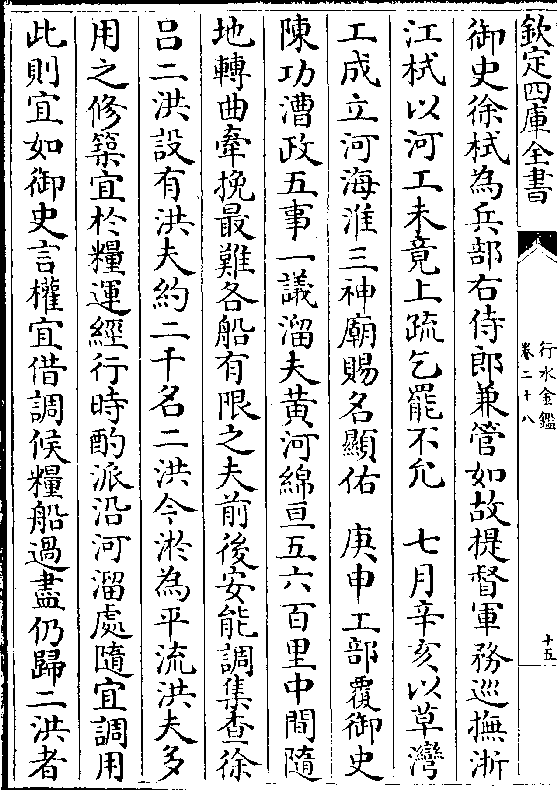 欽定四庫全書
行水金鑑
卷二十八
十五
御史徐栻為兵部右侍郎兼管如故提督軍務巡撫浙
江栻以河工未竟上疏乞罷不允　七月辛亥以草灣
工成立河海淮三神廟賜名顯佑　庚申工部覆御史
陳功漕政五事一議溜夫黄河綿亘五六百里中間隨
地轉曲牽挽最難各船有限之夫前後安能調集查徐
吕二洪設有洪夫約二千名二洪今淤為平流洪夫多
用之修築宜於糧運經行時酌派沿河溜處隨宜調用
此則宜如御史言權宜借調候糧船過盡仍歸二洪者